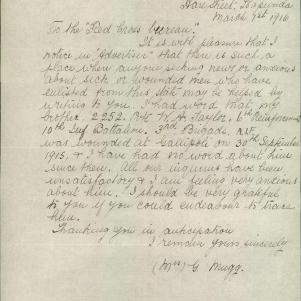 Hare Street, Kapunda
March 1st 1916
To the "Red Cross bureau."
It is with pleasure that I
notice in "Advertiser" that there is such a
place where anyone seeking news or anxious
about sick or wounded men who have
enlisted from this State may be helped by
writing to you. I had word that my
brother, 2252. Pte W. A. Taylor, 6th Reinforcements
10th Inf Battalion. 3rd Brigade, A.I.F.
was wounded at Gallipoli on 30th September
1915, & I have had no word about him
since then. All our inquiries have been
unsatisfactory & I am feeling very anxious
about him. I should be very grateful
to you if you could endeavour to trace
him.
Thanking you in anticipation
I remain yours sincerely
(Mrs) G Mugg.